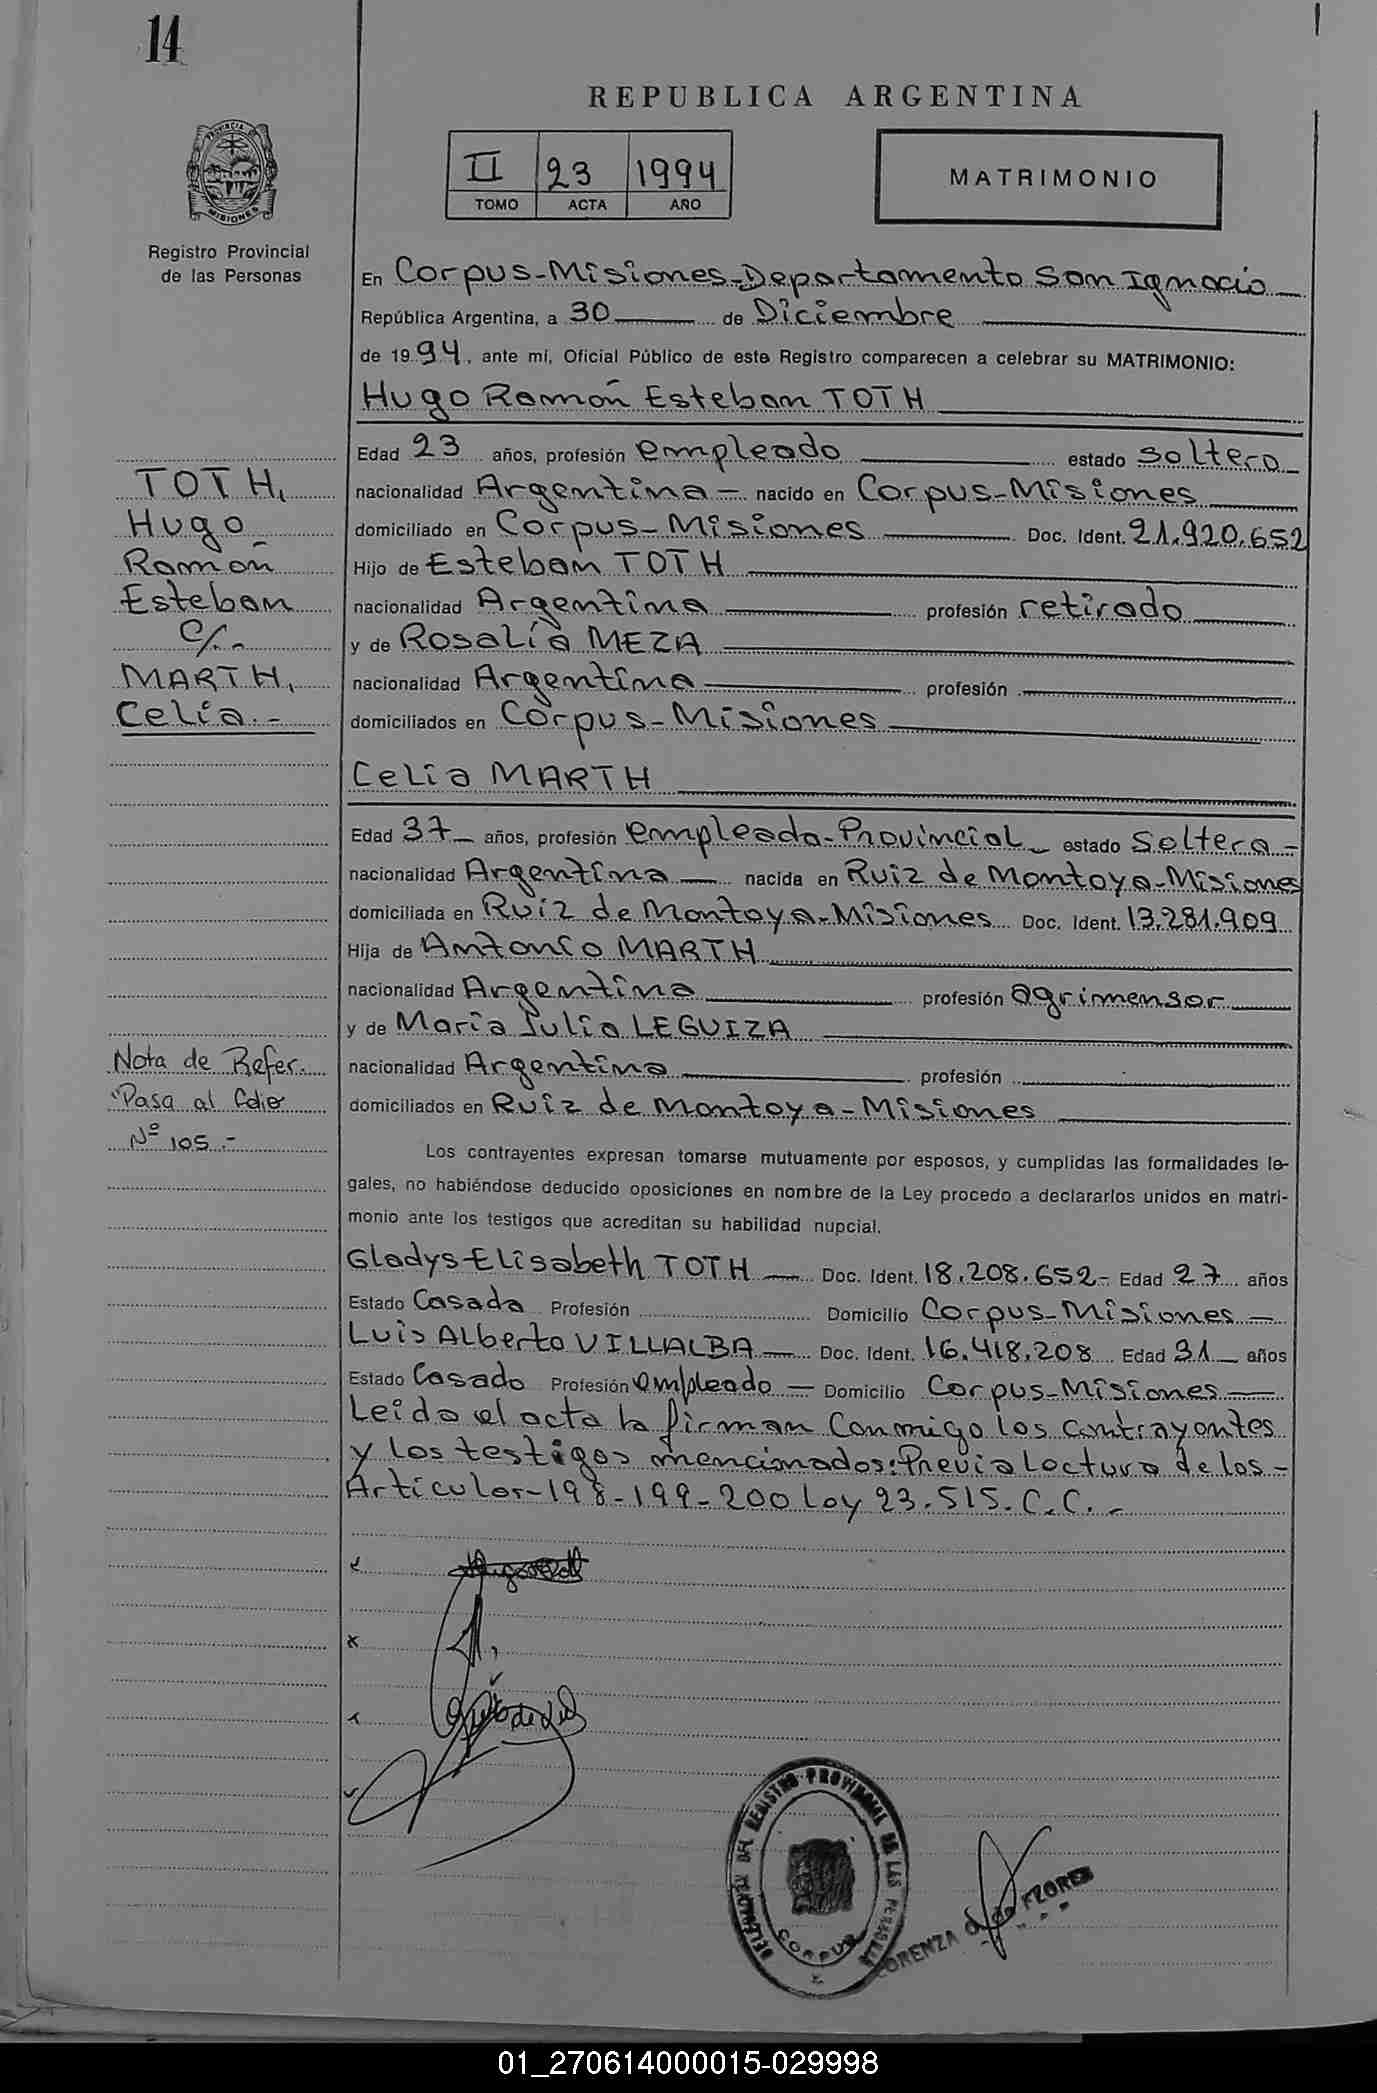 14
REPUBLICA ARGENTINA
II 23 1994
TOMO ACTA AÑO
MATRIMONIO
PROVINCIA DE
MISIONES
Registro Provincial
de las Personas
En Corpus-Misiones-Departamento San Ignacio
República Argentina, a 30 de Diciembre
de 1994, ante mí, Oficial Público de este Registro comparecen a celebrar su MATRIMONIO:
Hugo Ramón Esteban TOTH
Edad 23 años, profesión empleado estado soltero
nacionalidad Argentina - nacido en Corpus-Misiones
domiciliado en Corpus-Misiones Doc. Ident. 21.920.652
Hijo de Esteban TOTH
nacionalidad Argentina profesión retirado
y de Rosalía MEZA
nacionalidad Argentina profesión
domiciliados en Corpus-Misiones
TOTH,
Hugo
Ramón
Esteban
c/.-
MARTH,
Celia.-
Celia MARTH
Edad 37 años, profesión empleada-Provincial estado Soltera-
nacionalidad Argentina nacida en Ruiz de Montoya-Misiones
domiciliada en Ruiz de Montoya-Misiones Doc. Ident. 13.281.909
Hija de Antonio MARTH
nacionalidad Argentina profesión agrimensor
y de María Julia LEGUIZA
nacionalidad Argentina profesión
domiciliados en Ruiz de Montoya-Misiones
Nota de Refer.
Pasa al folio
Nº 105.-
Los contrayentes expresan tomarse mutuamente por esposos, y cumplidas las formalidades le-
gales, no habiéndose deducido oposiciones en nombre de la Ley procedo a declararlos unidos en matri-
monio ante los testigos que acreditan su habilidad nupcial.
Gladys Elisabeth TOTH Doc. Ident. 18.208.652- Edad 27 años
Estado Casada Profesión Domicilio Corpus-Misiones-
Luis Alberto VILLALBA Doc. Ident. 16.418.208 Edad 31 años
Estado Casado Profesión empleado - Domicilio Corpus-Misiones
Leida el acta la firman Conmigo los contrayentes
y los testigos mencionados: Previa lectura de los-
Articulos-198-199-200 Ley 23.515.C.C.-
DELEGACION DEL REGISTRO PROVINCIAL DE LAS PERSONAS
CORPUS
LORENZA de FLORES
01_270614000015-029998